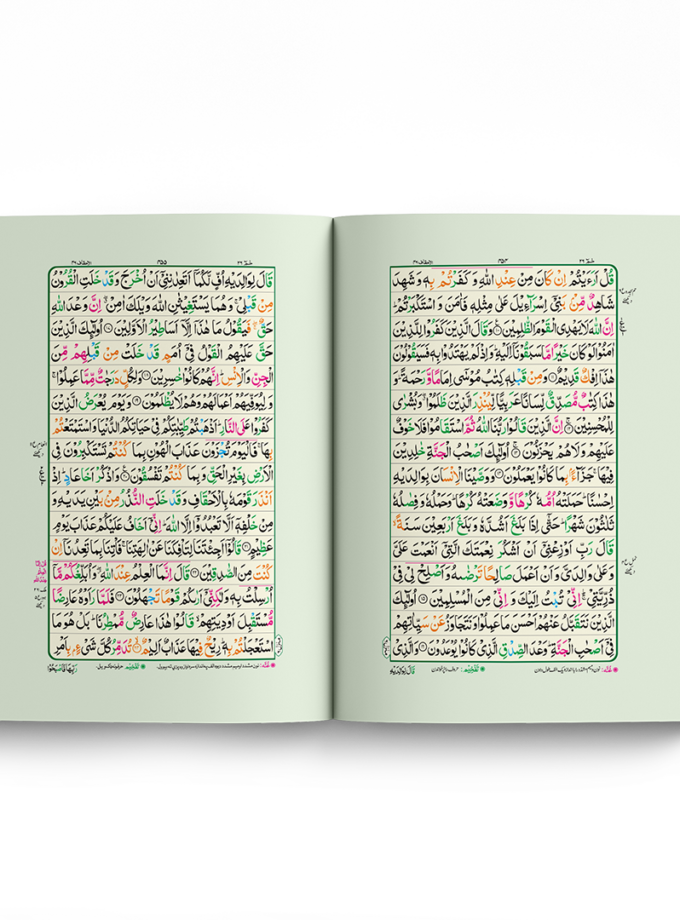 حٰمٓ ٢٦ ٣٥٤ الاحقاف ٤٦
قُلْ اَرَءَيْتُمْ اِنْ كَانَ مِنْ عِنْدِ اللّٰهِ وَ كَفَرْتُمْ بِهٖ وَشَهِدَ
شَاهِدٌ مِّنْ بَنِيْٓ اِسْرَآءِيْلَ عَلٰى مِثْلِهٖ فَاٰمَنَ وَ اسْتَكْبَرْتُمْ ؕ
اِنَّ اللّٰهَ لَا يَهْدِى الْقَوْمَ الظّٰلِمِيْنَ ۝ وَقَالَ الَّذِيْنَ كَفَرُوْا لِلَّذِيْنَ
اٰمَنُوْا لَوْ كَانَ خَيْرًا مَّا سَبَقُوْنَآ اِلَيْهِ ؕ وَاِذْ لَمْ يَهْتَدُوْا بِهٖ فَسَيَقُوْلُوْنَ
هٰذَآ اِفْكٌ قَدِيْمٌ ۝ وَمِنْ قَبْلِهٖ كِتٰبُ مُوْسٰٓى اِمَامًا وَّ رَحْمَةً ؕ وَ
هٰذَا كِتٰبٌ مُّصَدِّقٌ لِّسَانًا عَرَبِيًّا لِّيُنْذِرَ الَّذِيْنَ ظَلَمُوْا ۖ وَبُشْرٰى
لِلْمُحْسِنِيْنَ ۝ اِنَّ الَّذِيْنَ قَالُوْا رَبُّنَا اللّٰهُ ثُمَّ اسْتَقَامُوْا فَلَا خَوْفٌ
عَلَيْهِمْ وَلَا هُمْ يَحْزَنُوْنَ ۝ اُولٰٓئِكَ اَصْحٰبُ الْجَنَّةِ خٰلِدِيْنَ
فِيْهَا ۚ جَزَآءًۢ بِمَا كَانُوْا يَعْمَلُوْنَ ۝ وَوَصَّيْنَا الْاِنْسَانَ بِوَالِدَيْهِ
اِحْسٰنًا ؕ حَمَلَتْهُ اُمُّهٗ كُرْهًا وَّ وَضَعَتْهُ كُرْهًا ؕ وَحَمْلُهٗ وَ فِصٰلُهٗ
ثَلٰثُوْنَ شَهْرًا ؕ حَتّٰٓى اِذَا بَلَغَ اَشُدَّهٗ وَ بَلَغَ اَرْبَعِيْنَ سَنَةً ۙ
قَالَ رَبِّ اَوْزِعْنِيْٓ اَنْ اَشْكُرَ نِعْمَتَكَ الَّتِيْٓ اَنْعَمْتَ عَلَيَّ
وَ عَلٰى وَالِدَيَّ وَ اَنْ اَعْمَلَ صَالِحًا تَرْضٰىهُ وَ اَصْلِحْ لِيْ فِيْ
ذُرِّيَّتِيْ ؕۚ اِنِّيْ تُبْتُ اِلَيْكَ وَ اِنِّيْ مِنَ الْمُسْلِمِيْنَ ۝ اُولٰٓئِكَ
الَّذِيْنَ نَتَقَبَّلُ عَنْهُمْ اَحْسَنَ مَا عَمِلُوْا وَ نَتَجَاوَزُ عَنْ سَيِّاٰتِهِمْ
فِيْٓ اَصْحٰبِ الْجَنَّةِ ؕ وَعْدَ الصِّدْقِ الَّذِيْ كَانُوْا يُوْعَدُوْنَ ۝ وَ الَّذِيْ
قَالَ لِوَالِدَيْهِ
حٰمٓ ٢٦ ٣٥٥ الاحقاف ٤٦
قَالَ لِوَالِدَيْهِ اُفٍّ لَّكُمَآ اَتَعِدٰنِنِيْٓ اَنْ اُخْرَجَ وَ قَدْ خَلَتِ الْقُرُوْنُ
مِنْ قَبْلِيْ ۚ وَ هُمَا يَسْتَغِيْثٰنِ اللّٰهَ وَيْلَكَ اٰمِنْ ۖ اِنَّ وَعْدَ اللّٰهِ
حَقٌّ ۚۖ فَيَقُوْلُ مَا هٰذَآ اِلَّآ اَسَاطِيْرُ الْاَوَّلِيْنَ ۝ اُولٰٓئِكَ الَّذِيْنَ
حَقَّ عَلَيْهِمُ الْقَوْلُ فِيْٓ اُمَمٍ قَدْ خَلَتْ مِنْ قَبْلِهِمْ مِّنَ
الْجِنِّ وَالْاِنْسِ ؕ اِنَّهُمْ كَانُوْا خٰسِرِيْنَ ۝ وَلِكُلٍّ دَرَجٰتٌ مِّمَّا عَمِلُوْا ۚ
وَ لِيُوَفِّيَهُمْ اَعْمَالَهُمْ وَ هُمْ لَا يُظْلَمُوْنَ ۝ وَ يَوْمَ يُعْرَضُ الَّذِيْنَ
كَفَرُوْا عَلَى النَّارِ ؕ اَذْهَبْتُمْ طَيِّبٰتِكُمْ فِيْ حَيَاتِكُمُ الدُّنْيَا وَ اسْتَمْتَعْتُمْ
بِهَا ۚ فَالْيَوْمَ تُجْزَوْنَ عَذَابَ الْهُوْنِ بِمَا كُنْتُمْ تَسْتَكْبِرُوْنَ فِي
الْاَرْضِ بِغَيْرِ الْحَقِّ وَ بِمَا كُنْتُمْ تَفْسُقُوْنَ ۝ وَ اذْكُرْ اَخَا عَادٍ ؕ اِذْ
اَنْذَرَ قَوْمَهٗ بِالْاَحْقَافِ وَ قَدْ خَلَتِ النُّذُرُ مِنْۢ بَيْنِ يَدَيْهِ وَ
مِنْ خَلْفِهٖٓ اَلَّا تَعْبُدُوْٓا اِلَّا اللّٰهَ ؕ اِنِّيْٓ اَخَافُ عَلَيْكُمْ عَذَابَ يَوْمٍ
عَظِيْمٍ ۝ قَالُوْٓا اَجِئْتَنَا لِتَاْفِكَنَا عَنْ اٰلِهَتِنَا ۚ فَاْتِنَا بِمَا تَعِدُنَآ اِنْ
كُنْتَ مِنَ الصّٰدِقِيْنَ ۝ قَالَ اِنَّمَا الْعِلْمُ عِنْدَ اللّٰهِ ۖ وَ اُبَلِّغُكُمْ مَّآ
اُرْسِلْتُ بِهٖ وَ لٰكِنِّيْٓ اَرٰىكُمْ قَوْمًا تَجْهَلُوْنَ ۝ فَلَمَّا رَاَوْهُ عَارِضًا
مُّسْتَقْبِلَ اَوْدِيَتِهِمْ ۙ قَالُوْا هٰذَا عَارِضٌ مُّمْطِرُنَا ؕ بَلْ هُوَ مَا
اسْتَعْجَلْتُمْ بِهٖ ؕ رِيْحٌ فِيْهَا عَذَابٌ اَلِيْمٌ ۝ تُدَمِّرُ كُلَّ شَيْءٍۭ بِاَمْرِ
رَبِّهَا فَاَصْبَحُوْا